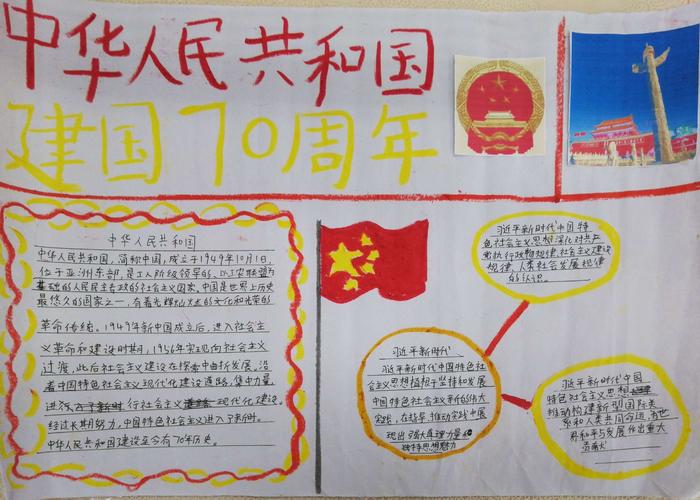 中华人民共和国
建国70周年
中华人民共和国
中华人民共和国，简称中国，成立于1949年10月1日，
位于亚洲东部，是工人阶级领导的，以工农联盟为
基础的人民民主专政的社会主义国家，中国是世界上历史
最悠久的国家之一，有着光辉灿烂的文化和光荣的
革命传统。1949年新中国成立后，进入社会主
义革命和建设时期，1956年实现向社会主义
过渡，此后社会主义建设在探索中曲折发展。沿
着中国特色社会主义现代化建设道路，集中力量
进行社会主义现代化建设，
经过长期努力，中国特色社会主义进入了新时。
中华人民共和国建设至今有70年历史。
习近平新时代中国特
色社会主义思想深化对共产
党执行政物规律，社会主义建设
规律，人类社会发展规律
的认识。
习近平新时代
习近平新时代中国特色社
会主义思想植根于坚持和发展
中国特色社会主义新的伟大
实践，在指导、推动实践中展
现出强大真理力量和
独特思想魅力
习近平新时代中国
特色社会主义思想
推动构建新型国际关
系和人类共同命运，为世
界和平与发展作出重大
贡献